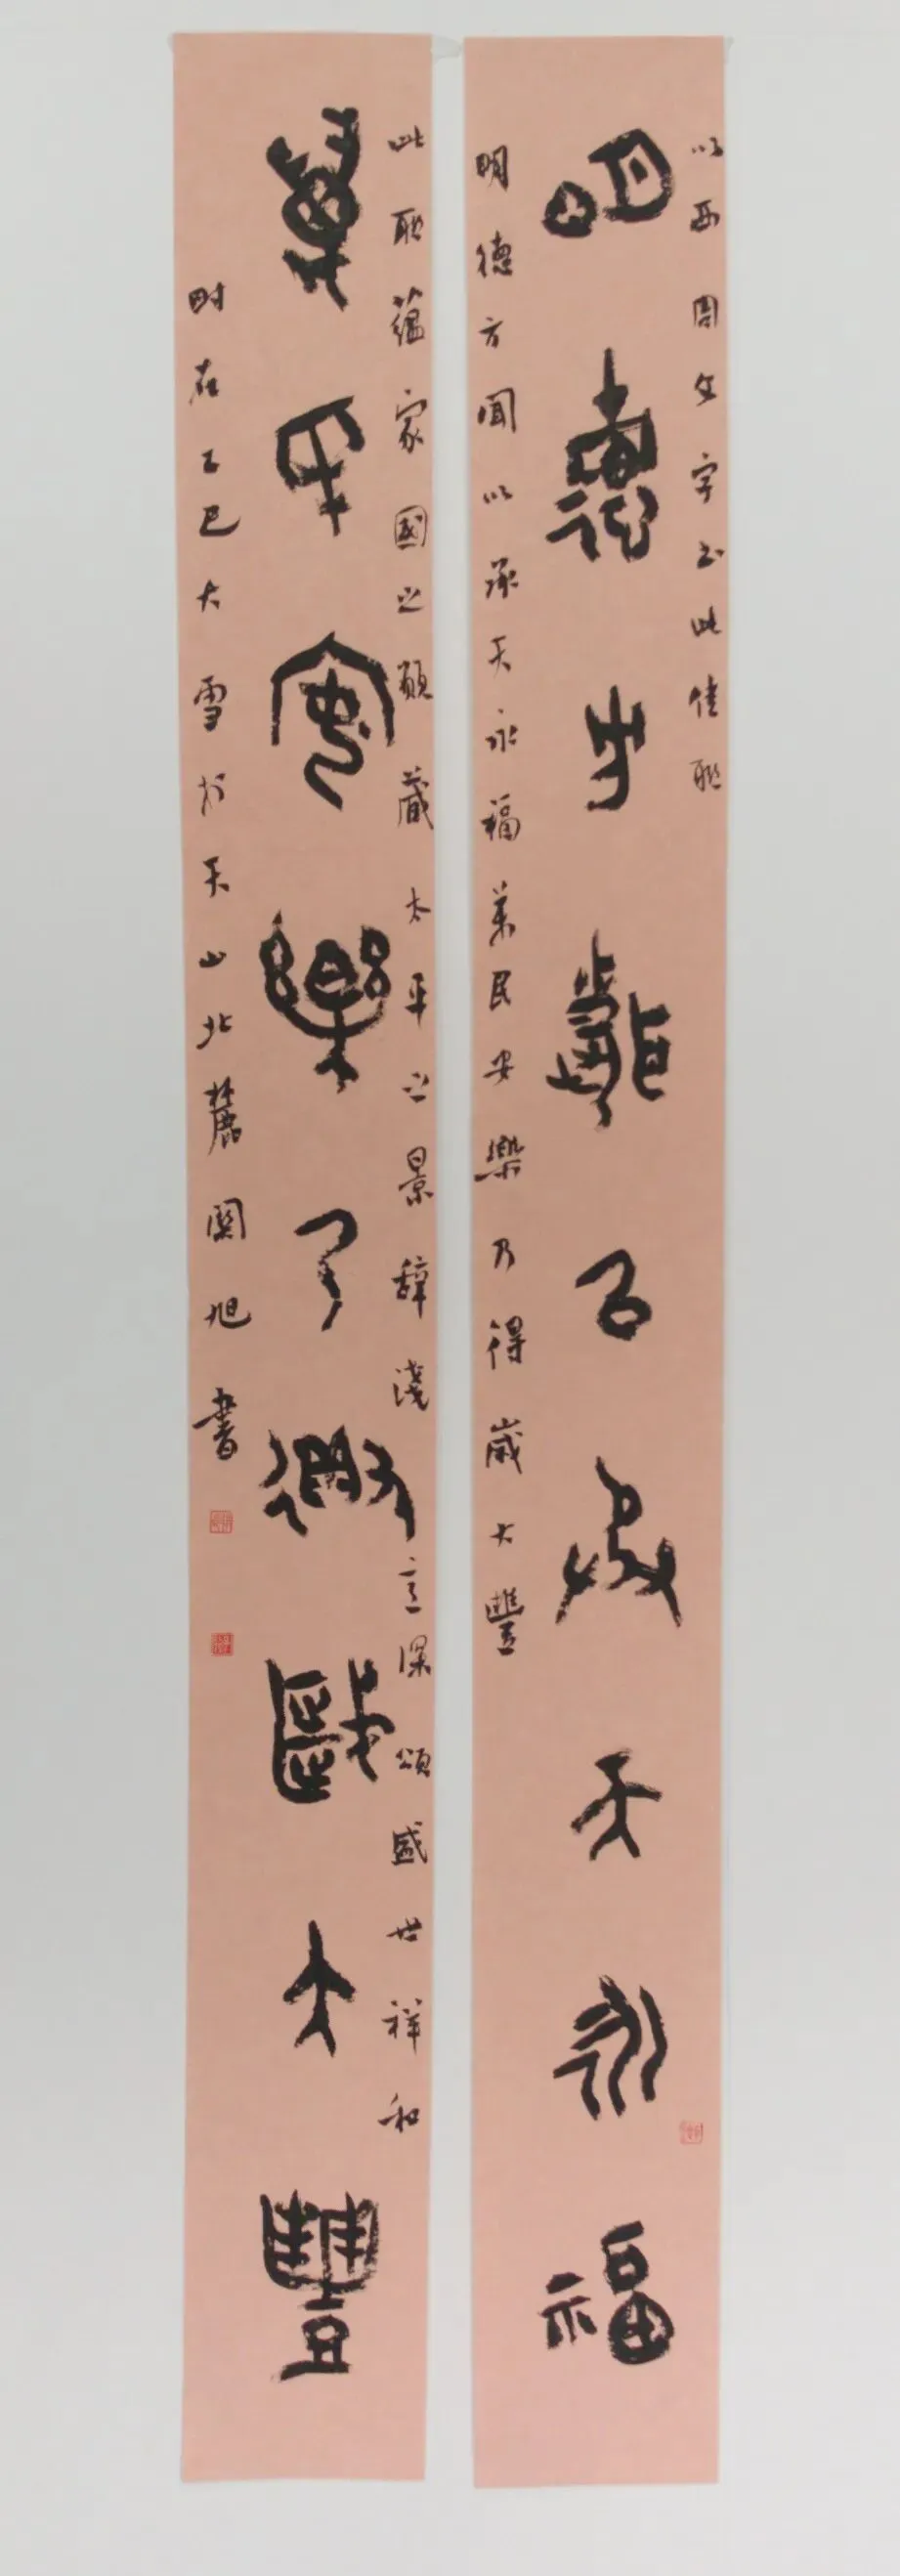 以西周文字書此佳聯
明德方聞以承天永福
明德方聞以承天永福萬民安樂乃得歲大豐
此聯蘊家國之願藏太平之景辭淺意深頌盛世祥和
萬民安樂乃得歲大豐
時在乙巳大雪於天山北麓關旭書